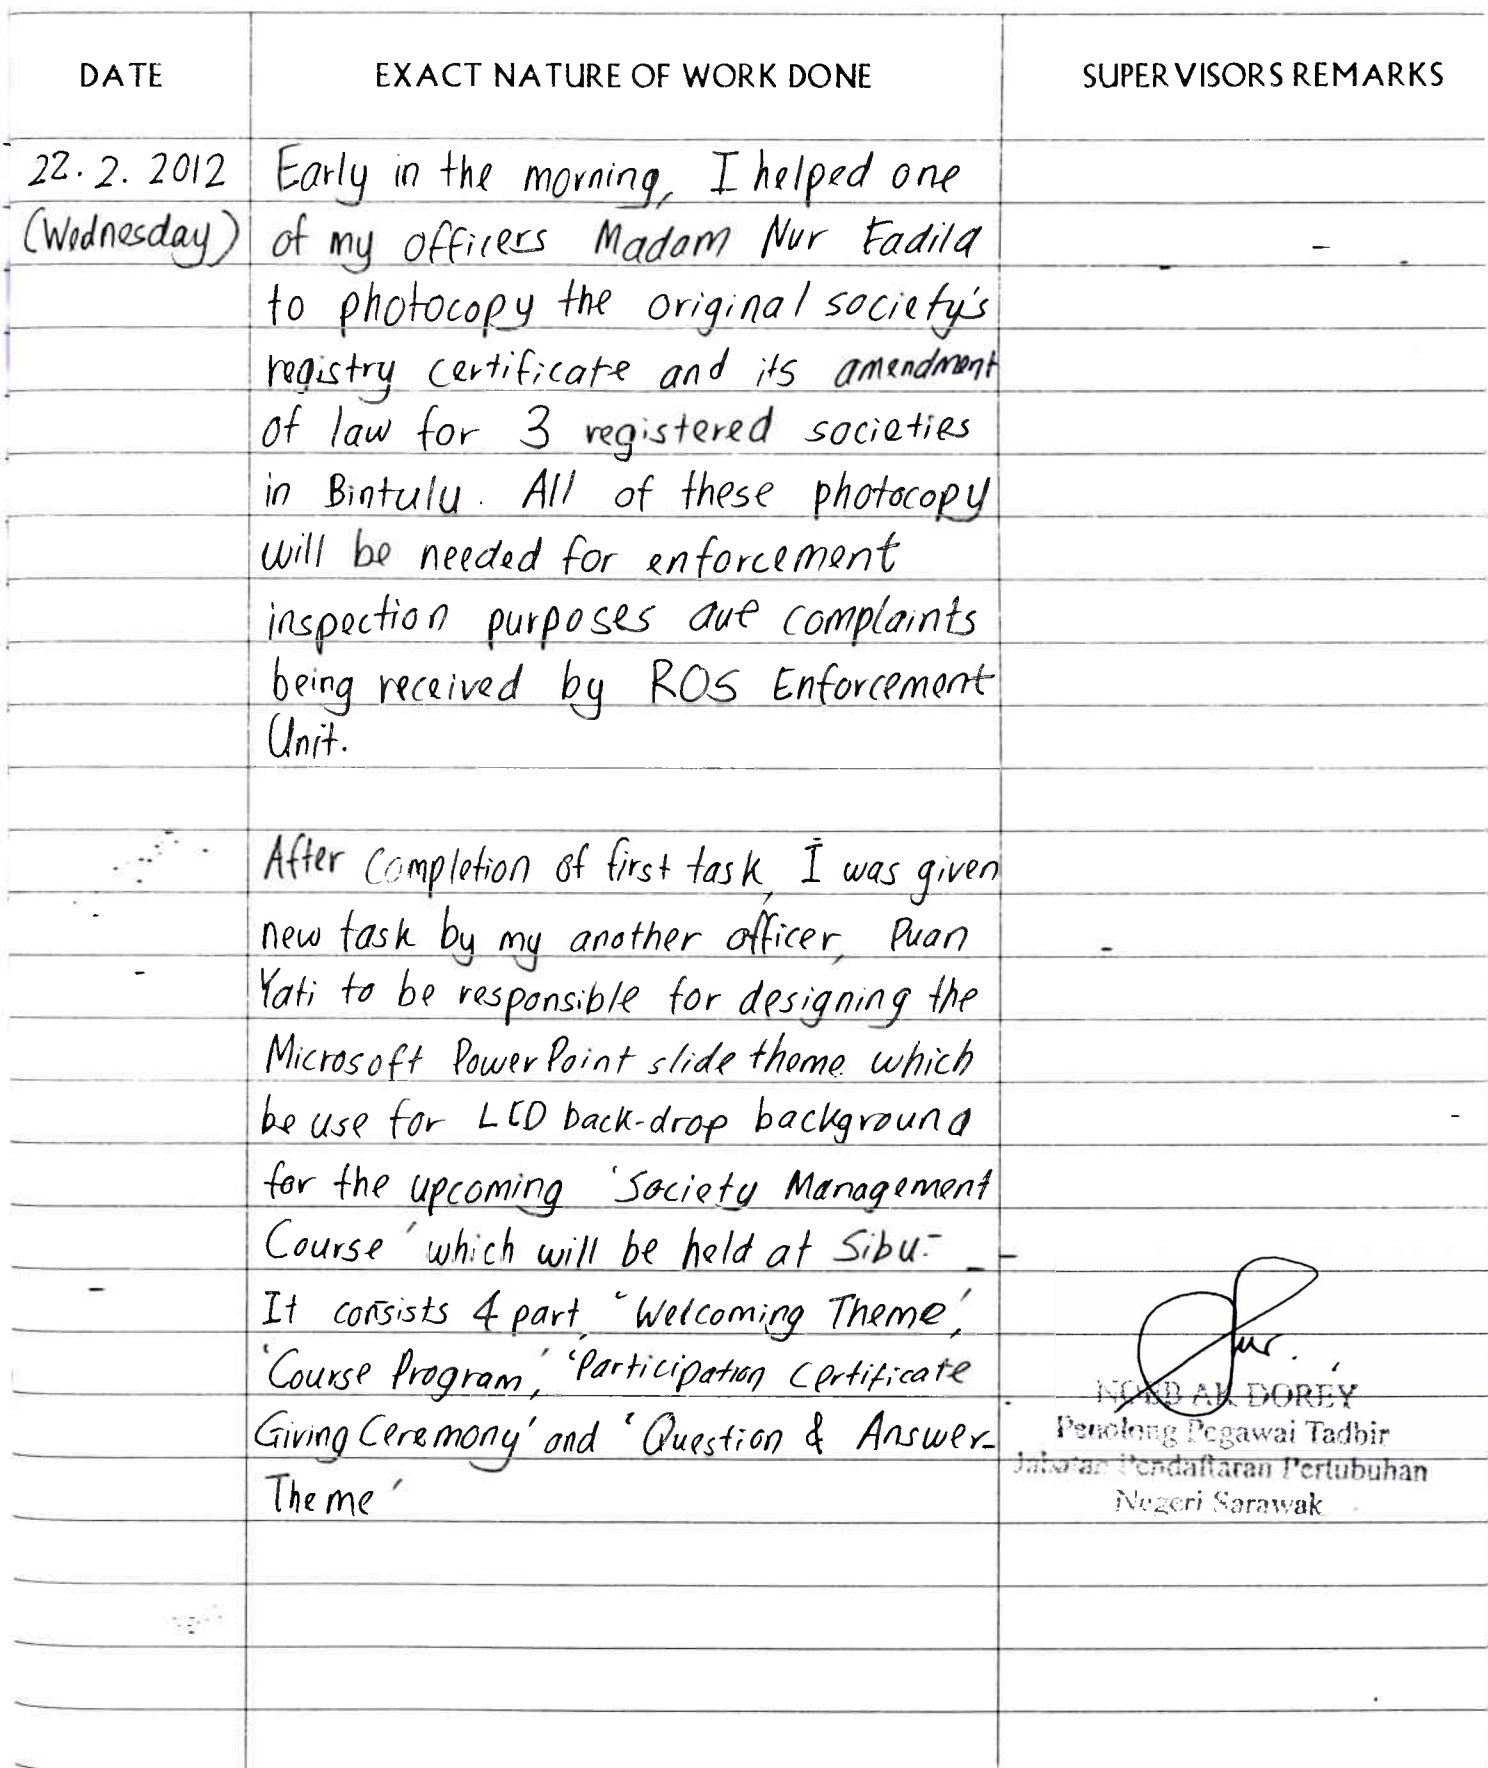 DATE EXACT NATURE OF WORK DONE SUPERVISORS REMARKS
22.2.2012 Early in the morning, I helped one
(Wednesday) of my officers Madam Nur Fadila
to photocopy the original society's
registry certificate and its amendment
of law for 3 registered societies
in Bintulu. All of these photocopy
will be needed for enforcement
inspection purposes due complaints
being received by ROS Enforcement
Unit.
After completion of first task, I was given
new task by my another officer, Puan
Yati to be responsible for designing the
Microsoft PowerPoint slide theme which
be use for LCD back-drop background
for the upcoming 'Society Management
Course' which will be held at Sibu.
It consists 4 part, 'Welcoming Theme',
'Course Program', 'Participation Certificate
Giving Ceremony' and 'Question & Answer
Theme'
AK DOREY
Penolong Pegawai Tadbir
Jabatan Pendaftaran Pertubuhan
Negeri Sarawak